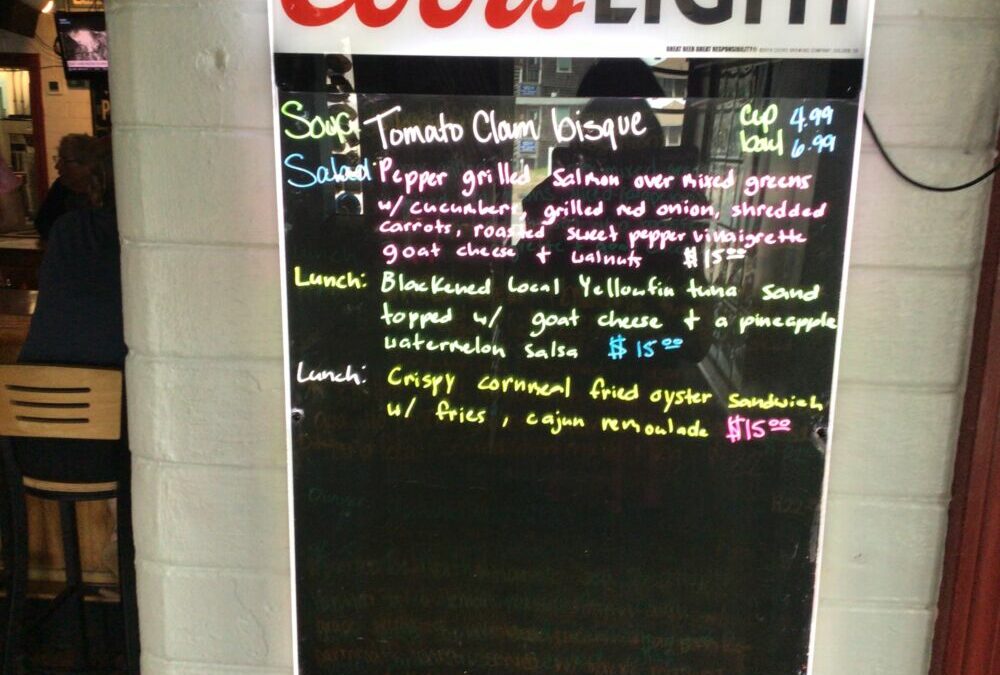 Coors LIGHT
GREAT BEER GREAT RESPONSIBILITY®
Soup Tomato Clam bisque cup 4.99
bowl 6.99
Salad: Pepper grilled Salmon over mixed greens
w/ cucumbers, grilled red onion, shredded
carrots, roasted sweet pepper vinaigrette
goat cheese + walnuts $15.00
Lunch: Blackened Local Yellowfin tuna Sand
topped w/ goat cheese + a pineapple
watermelon salsa $15.00
Lunch: Crispy cornmeal fried oyster sandwich
w/ fries, cajun remoulade $15.00